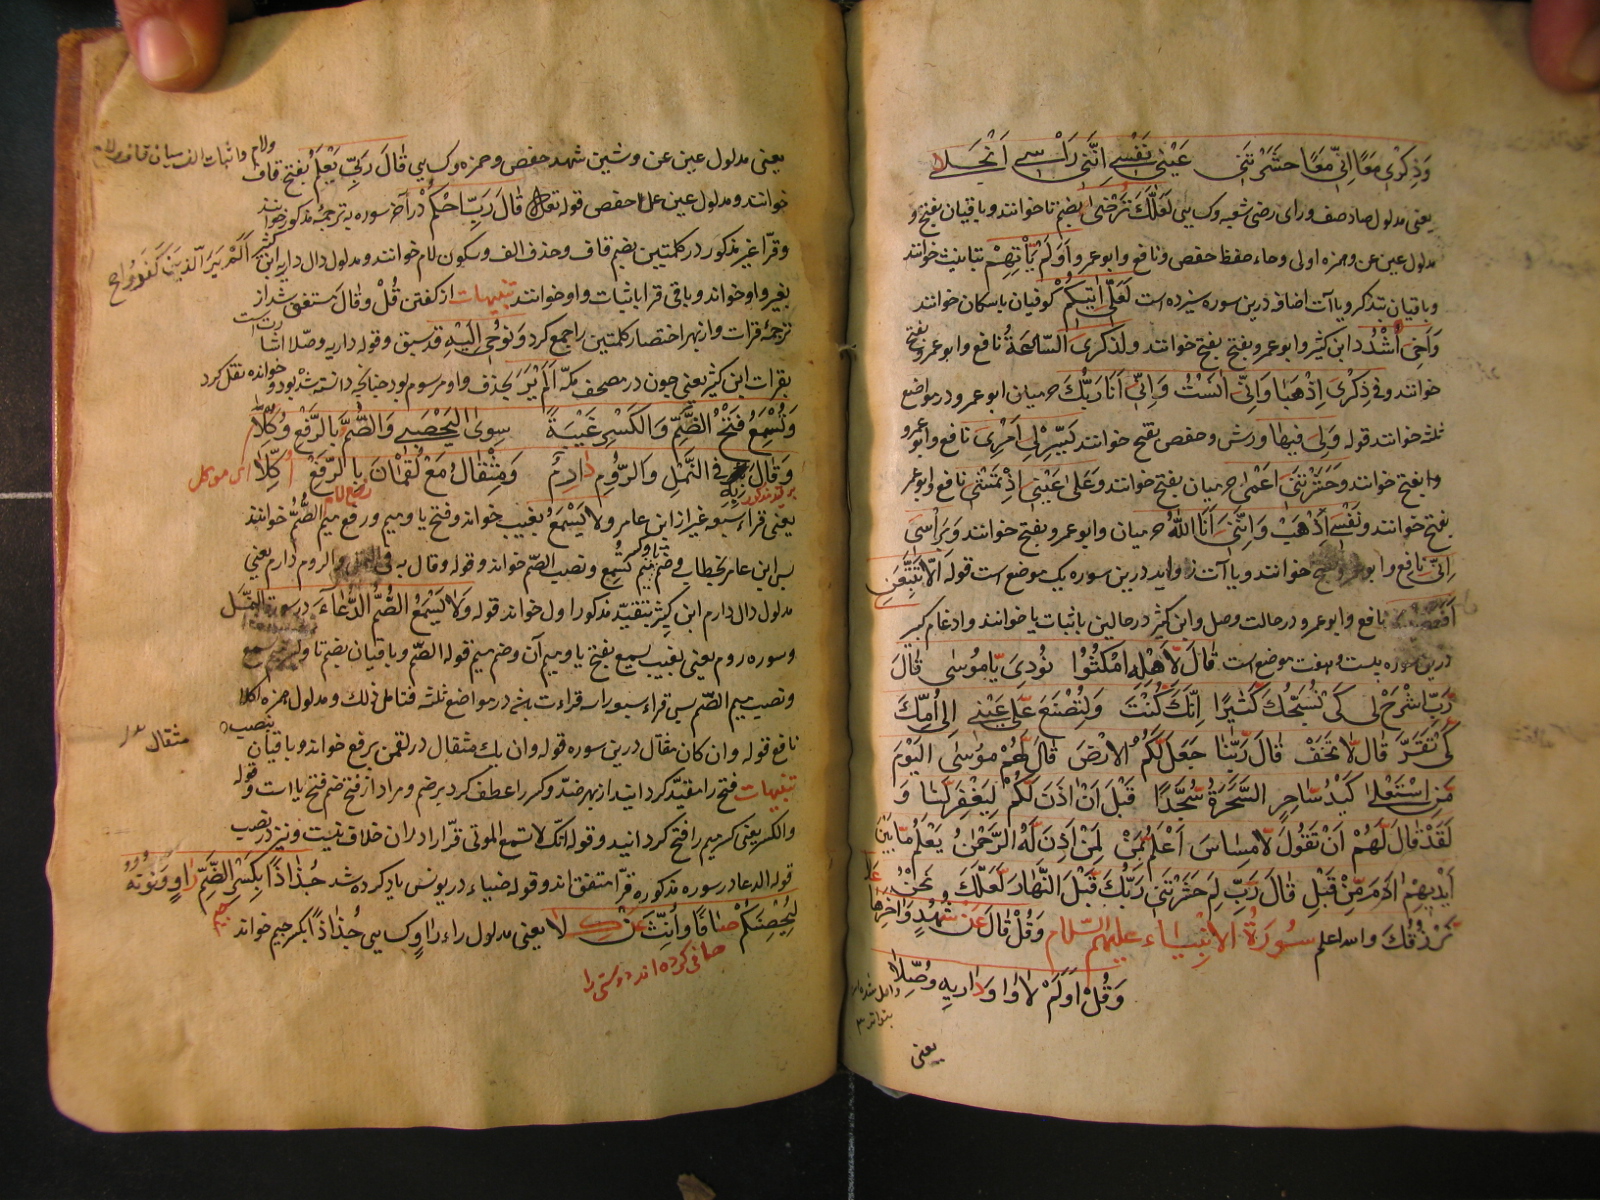 وَذِكْرِی مَعًا اِنِّی مَعًا حَشَرْتَنِی عَیْنِی نَفْسِی اِنَّنِی رَاْسِی انْجَلا
یعنی مدلول صاد صف و رای رضی شعبه وکسایی لَعَلَّكَ تَرْضٰی بضم تا خوانند و باقیان بفتح و
مدلول عین عن وحمزه اولی وحاء حفظ حفص ونافع وابوعمرو اَوَلَمْ تَأْتِهِمْ بتانیث خوانند
وباقیان بتذکر ویاآت اضافه درین سوره سیزده است لَعَلّٰی اٰتِیكُمْ کوفیان باسکان خوانند
وَاَخِی اشْدُدْ ابن کثیر وابوعمرو بفتح خوانند وَلِذِكْرِی السَّاعَةَ نافع وابوعمرو بفتح
خوانند وفِی ذِكْرِی اذْهَبَا وَاِنِّی اٰنَسْتُ وَاِنِّی اَنَا رَبُّكَ حرمیان ابوعمرو در مواضع
ثلثه خوانند قوله وَلِی فِیهَا ورش وحفص بفتح خوانند یَسِّرْ لِی اَمْرِی نافع وابوعمرو
وا بفتح خوانند وحَشَرْتَنِی اَعْمٰی حرمیان بفتح خوانند وعَلٰی عَیْنِی اِذْ تَمْشِی نافع وابوعمرو
بفتح خوانند ونَفْسِی اذْهَبْ وَاِنَّنِی اَنَا اللّٰهُ حرمیان وابوعمرو بفتح خوانند وَبِرَاْسِی
اِنِّی نافع وابوعمرو بفتح خوانند ویاآت زواید درین سوره یک موضع است قوله اَلَّا تَتَّبِعَنِ
اَفَعَصَیْتَ نافع وابوعمرو در حالت وصل وابن کثیر در حالین باثبات یا خوانند وادغام کبیر
درین سوره بیست وهفت موضع است قَالَ لِاَهْلِهِ امْكُثُوا نُودِیَ یَا مُوسٰی قَالَ
رَبِّ اشْرَحْ لِی كَیْ نُسَبِّحَكَ كَثِیرًا اِنَّكَ كُنْتَ وَلِتُصْنَعَ عَلٰی عَیْنِی اِلٰی اُمِّكَ
كَیْ تَقَرَّ قَالَ لَا تَخَفْ قَالَ رَبُّنَا جَعَلَ لَكُمُ الْاَرْضَ قَالَ لَهُمْ مُوسٰی الْیَوْمَ
مَنِ اسْتَعْلٰی كَیْدُ سَاحِرٍ السَّحَرَةُ سُجَّدًا قَبْلَ اَنْ اٰذَنَ لَكُمْ لِیَغْفِرَ لَنَا وَ
لَقَدْ قَالَ لَهُمْ اَنْ تَقُولَ لَا مِسَاسَ اَعْلَمُ مِمَّنْ لِمَنْ اَذِنَ لَهُ الرَّحْمٰنُ یَعْلَمُ مَا بَیْنَ
اَیْدِیهِمْ اٰدَمَ مِنْ قَبْلُ قَالَ رَبِّ لِمَ حَشَرْتَنِی رَبِّكَ قَبْلَ النَّهَارِ لَعَلَّكَ نَحْنُ
نَرْزُقُكَ والله اعلم سُورَةُ الْاَنْبِیَاء عَلَیْهِمُ السَّلَام وَقُلْ قَالَ عَنْ شُهْدٍ وَاٰخِرُهَا عَلَا
وَقُلْ اَوَلَمْ لَا وَاوَ دَارِیهِ وَصَّلَا
یعنی
یعنی مدلول عین عن وشین شهد حفص وحمزه وکسایی قَالَ رَبِّی یَعْلَمُ بفتح قاف
ولام واثبات الف میان قاف ولام
خوانند ومدلول عین علا حفص قوله تعالی قَالَ رَبِّ احْكُمْ در آخر سوره به ترجمۀ مذکور خوانند
وقرّاء غیر مذکور در کلمتین بضم قاف وحذف الف وسکون لام خوانند ومدلول دال داریه ابن کثیر اَلَمْ یَرَ الَّذِینَ كَفَرُوا
بغیر واو خواند وباقی قرا باثبات واو خوانند تنبیهات از کفتن قُلْ وقَالَ مستغنی شد از
ترجمۀ قرات واز بهر اختصار کلمتین را جمع کرد وَنُوحِی اِلَیْهِ قد سبق وقوله داریه وصّلا اشارتست
بقرات ابن کثیر یعنی چون در مصحف مکّه اَلَمْ یَرَ بحذف واو مرسوم بود چنانچه دانسته شد بود وخوانده نقل کرد
وَتُسْمِعُ فَتْحُ الضَّمِّ وَالْكَسْرِ غَیْبَةً سِوَی الْیَحْصَبِی وَالصُّمُّ بِالرَّفْعِ وُكِّلَا
وَقَالَ بِهِ فِی النَّمْلِ وَالرُّومِ دَارِمٌ وَمِثْقَالُ مَعْ لُقْمَانَ بِالرَّفْعِ اُكْمِلَا
یعنی قراء سبعه غیر از ابن عامر وَلَا یَسْمَعُ بغیب خواند وفتح یا ومیم ورفع میم الصُّمُّ خوانند
پس ابن عامر بخطاب وضم وکسر میم تُسْمِعُ ونصب الصّم خواند وقوله وقال به فی النمل والروم دارم یعنی
مدلول دال دارم ابن کثیر بتقیّد مذکور اول خواند قوله وَلَا یَسْمَعُ الصُّمُّ الدُّعَاءَ در سورة النمل
وسوره روم یعنی بغیب یسمع بفتح یا ومیم آن وضم میم قوله الصّم وباقیان بضم تا وکسر میم تسمع
ونصب میم الصّم پس قراء سبعه را سه قراءت باشد در مواضع ثلثه فتامل ذلک ومدلول همزه اکملا
نافع قوله وان کان مثقال درین سوره قوله وان یک مثقال در لقمن برفع خواند وباقیان بنصب
مثقال
تنبیهات فتح را مقیّد کرد انید از بهر ضدّ وکسر را عطف کرد بر ضم ومراد از فتح ضم فتح یاات وقوله
والکسر یعنی کسر میم را فتح کردانید وقوله انّک لا تسمع الموتی قرّا را در ان خلاف نیست ونیز در نصب
قوله الدعا در سوره مذکوره قرّا متفق اند وقوله ضیاء در یونس یاد کرده شد جُذَاذًا بِكَسْرِ الضَّمِّ رَاوٍ وَنُونُهُ
لِیُحْصِنَكُمْ صَافًا وَاُنِّثَ عَنْ كِلَا یعنی مدلول راء راو کسایی جُذَاذًا بکسر جیم خواند
صافی کرده اند دوستی را